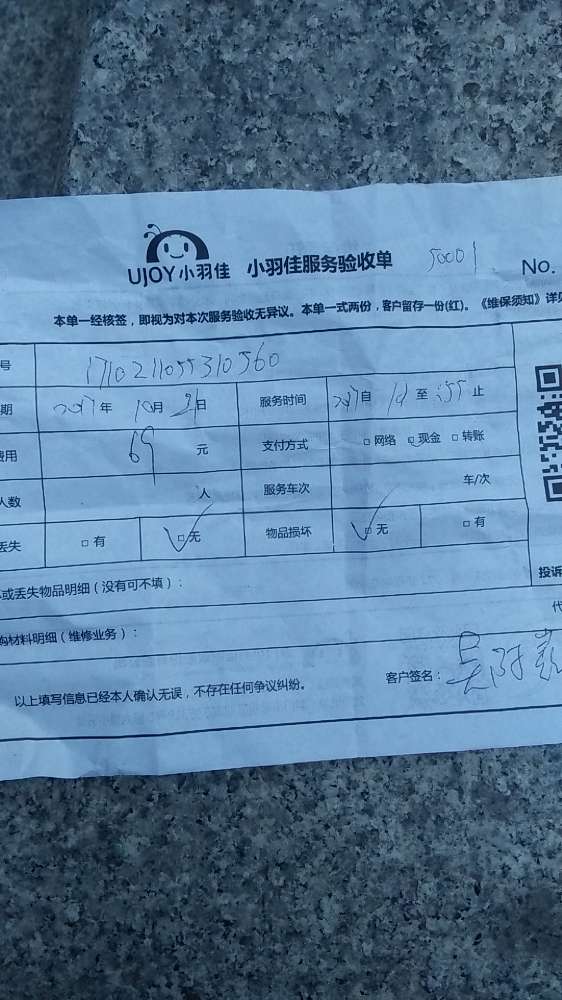 UJOY小羽佳 小羽佳服务验收单 50001 No.
本单一经核签，即视为对本次服务验收无异议。本单一式两份，客户留存一份(红)。《维保须知》详见
号 1710211055310560
期 2017年 10月 21日 服务时间 自 至 :55 止
费用 69 元 支付方式 □网络 □现金 □转账
人数 人 服务车次 车/次
丢失 □有 □无 物品损坏 □无 □有
或丢失物品明细（没有可不填）： 投诉
购材料明细（维修业务）： 代
以上填写信息已经本人确认无误，不存在任何争议纠纷。 客户签名：吴